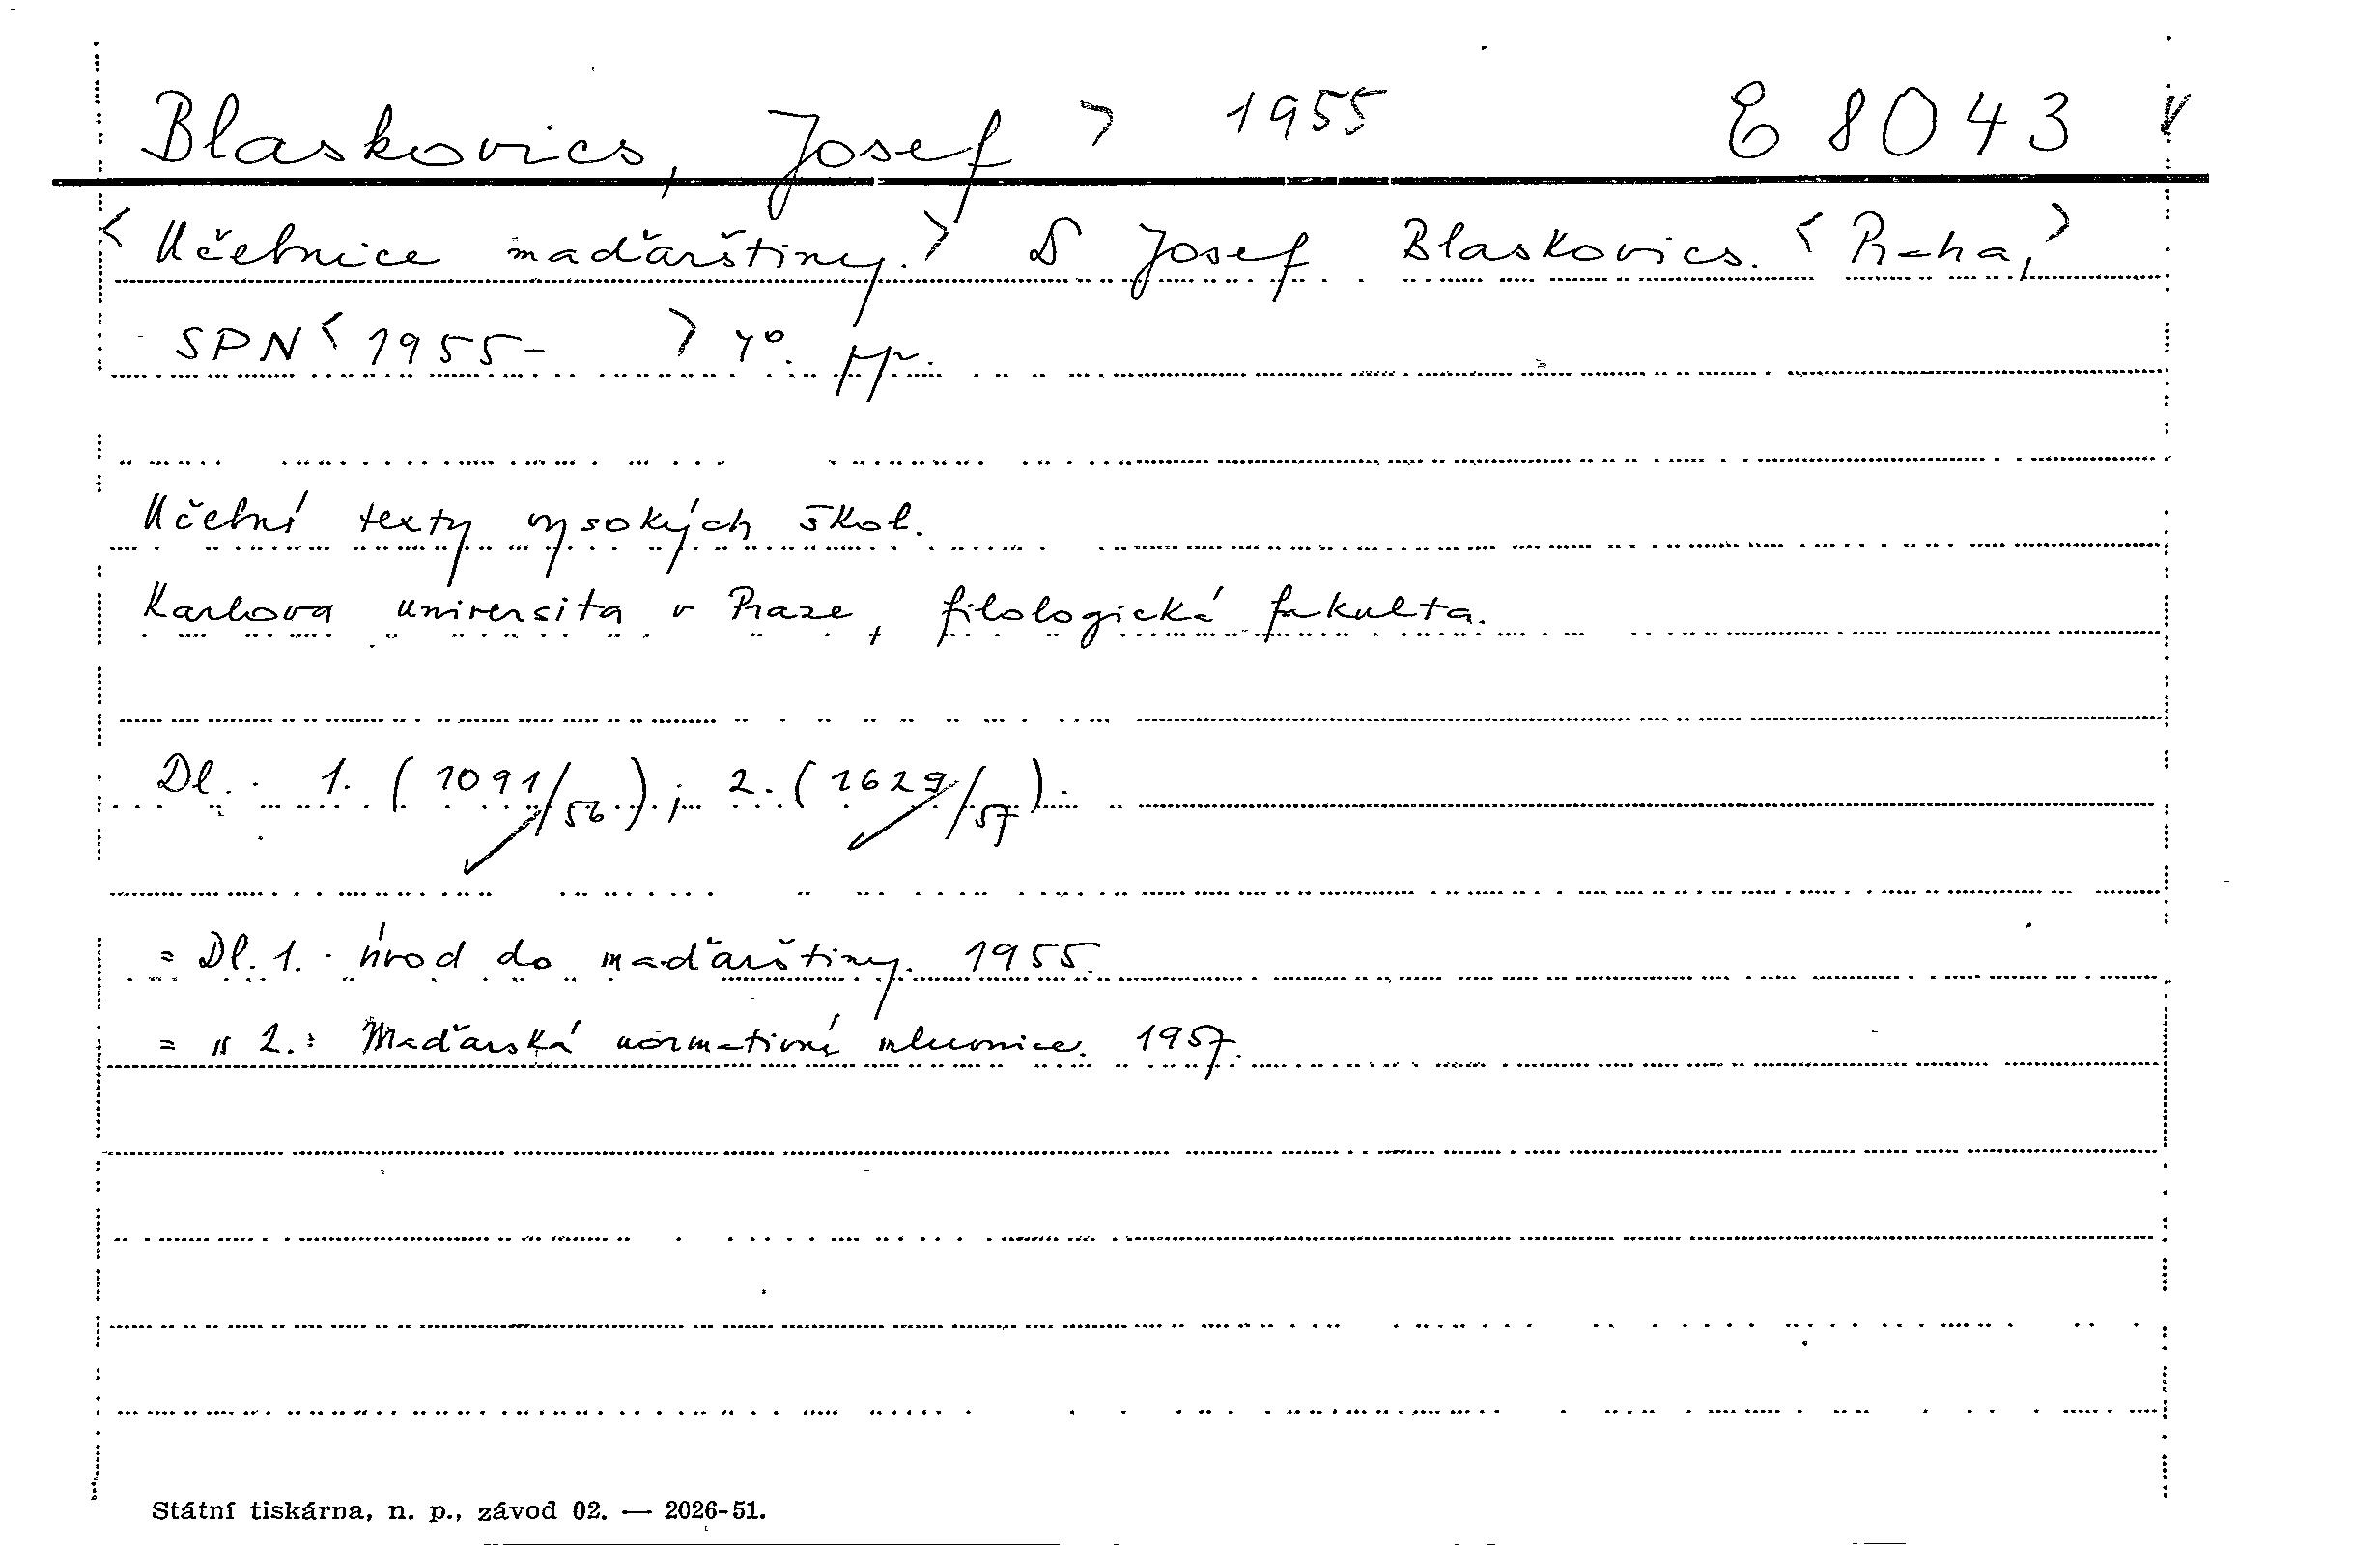 Blaskovics, Josef > 1955 E 8043 v
< Učebnice maďarštiny. > D Josef Blaskovics. < Praha, >
SPN < 1955- > 4°. ppr.
Učební texty vysokých škol.
Karlova universita v Praze, filologická fakulta.
Dl. 1. (1091/56); 2. (1629/57).
= Dl. 1. Úvod do maďarštiny. 1955.
= " 2.: Maďarská normativní mluvnice. 1957.
Státní tiskárna, n. p., závod 02. — 2026-51.